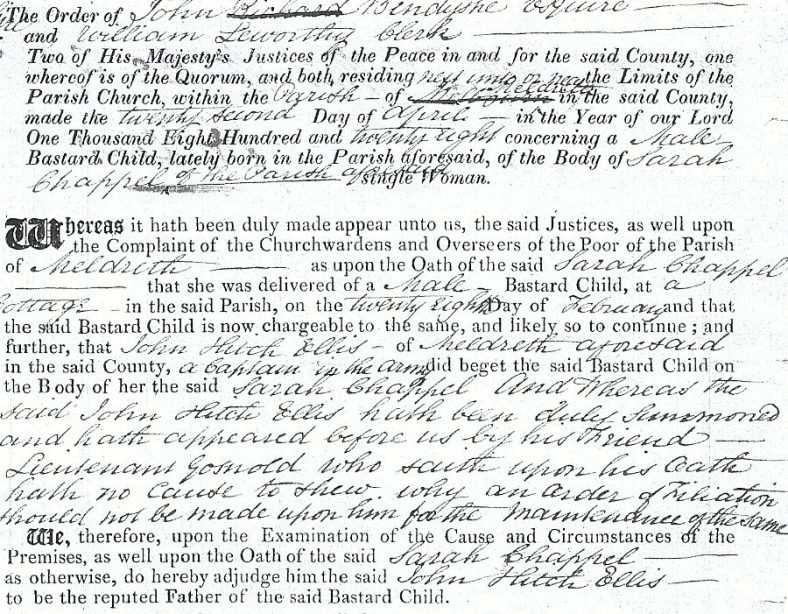 The Order of John Richard Bendyshe Esquire
and William Leworthy Clerk
Two of His Majesty's Justices of the Peace in and for the said County, one
whereof is of the Quorum, and both, residing next unto or near the Limits of the
Parish Church, within the Parish of Melbourn Meldreth in the said County,
made the twenty second Day of April in the Year of our Lord
One Thousand Eight Hundred and twenty eight concerning a Male
Bastard Child, lately born in the Parish aforesaid, of the Body of Sarah
Chappel of the Parish aforesaid single Woman.
Whereas it hath been duly made appear unto us, the said Justices, as well upon
the Complaint of the Churchwardens and Overseers of the Poor of the Parish
of Meldreth as upon the Oath of the said Sarah Chappel
that she was delivered of a Male Bastard Child, at a
Cottage in the said Parish, on the twenty eighth Day of February and that
the said Bastard Child is now chargeable to the same, and likely so to continue; and
further, that John Hitch Ellis of Meldreth aforesaid
in the said County, a Captain in the army did beget the said Bastard Child on
the Body of her the said Sarah Chappel And Whereas the
said John Hitch Ellis hath been duly Summoned
and hath appeared before us by his Friend
Lieutenant Gosnold who saith upon his Oath
hath no Cause to shew why an Order of Filiation
should not be made upon him for the maintenance of the same
We, therefore, upon the Examination of the Cause and Circumstances of the
Premises, as well upon the Oath of the said Sarah Chappel
as otherwise, do hereby adjudge him the said John Hitch Ellis
to be the reputed Father of the said Bastard Child.